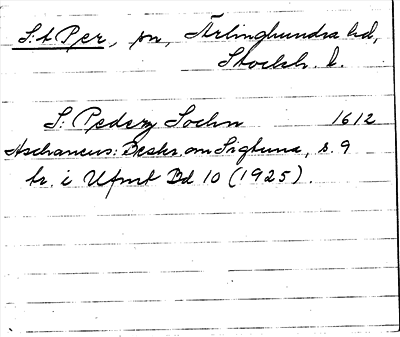 S:t Per, sn, Ärlinghundra hd,
Stockh. l.
S: Pederz Sochn 1612
Aschaneus: Beskr. om Sigtuna, s. 9
tr. i Ufmt Bd 10 (1925).